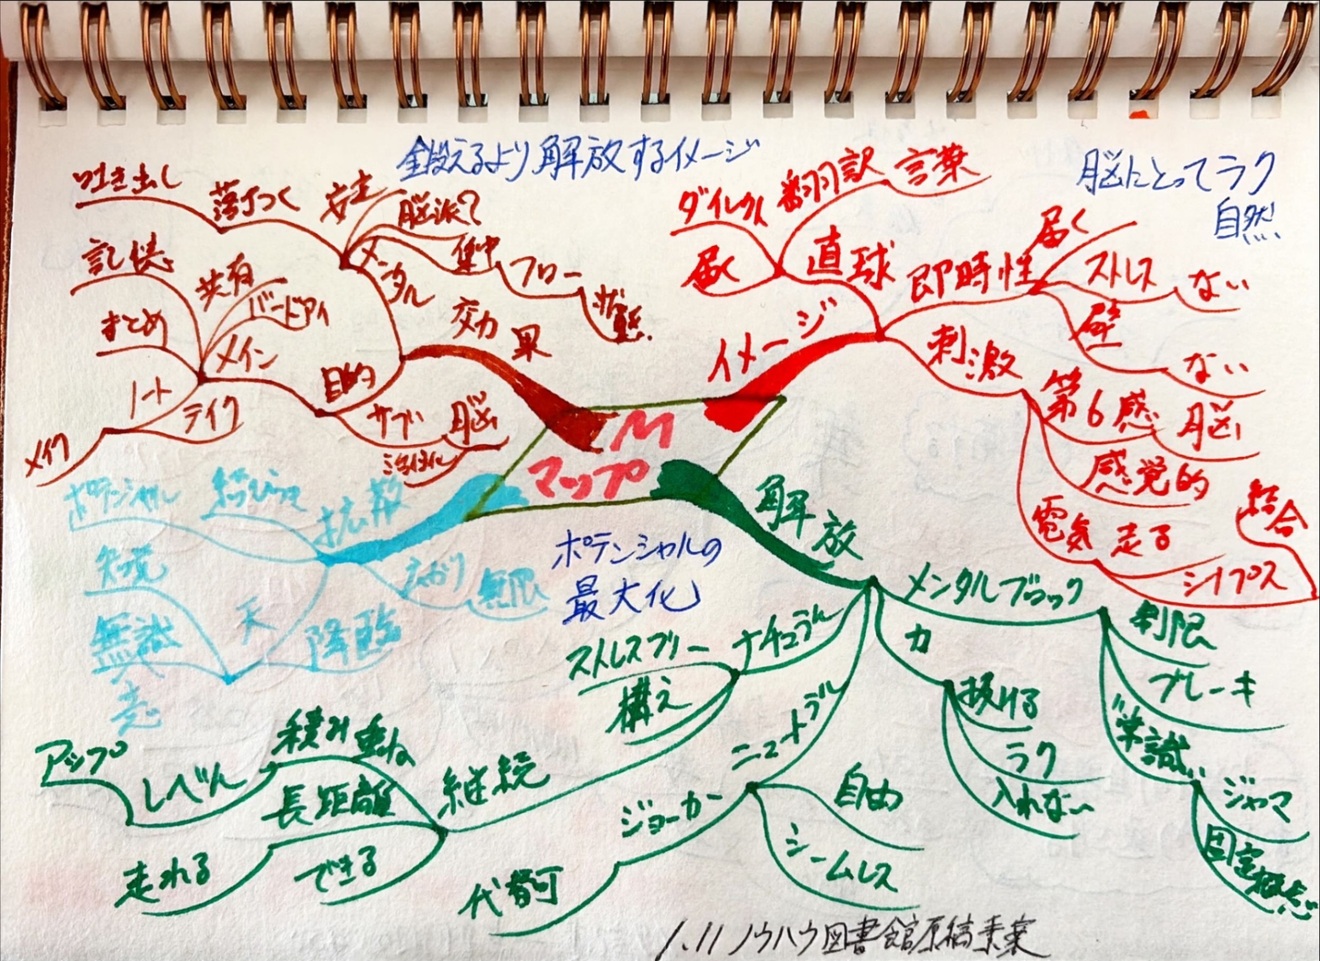 鍛えるより解放するイメージ
脳にとってラク
自然
Mマップ
ポテンシャルの
最大化
イメージ
直球
ダイレクト
翻訳
言葉
届く
即時性
届く
ストレス
ない
壁
ない
刺激
第6感
脳
感覚的
電気
走る
シナプス
結合
解放
メンタルブロック
制限
ブレーキ
常識
ジャマ
固定概念
力
抜ける
ラク
入れない
ニュートラル
自由
シームレス
ジョーカー
代替可
ナチュラル
ストレスフリー
構え
継続
積み重ね
レベル
アップ
長距離
できる
走れる
拡散
結びつき
ポテンシャル
広がり
無限
天
降臨
知覚
無意識
効果
メンタル
安定
脳派?
集中
フロー
状態
落ちつく
吐き出し
目的
メイン
バードアイ
共有
記憶
まとめ
ノート
テイク
メイク
サブ
脳
活性化
1.11 ノウハウ図書館原稿素案